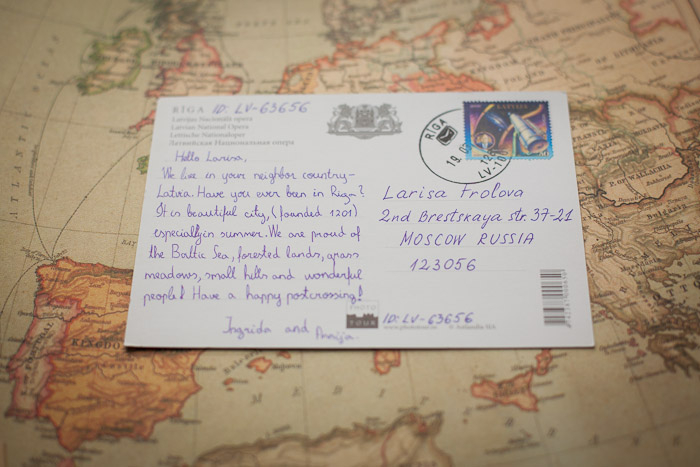 RĪGA ID: LV-63656
Latvijas Nacionālā opera
Latvian National Opera
Lettische Nationaloper
Латвийская Национальная опера
Hello Larisa,
We live in your neighbor country-
Latvia. Have you ever been in Riga?
It is beautiful city, (founded 1201)
especially in summer. We are proud of
the Baltic Sea, forested lands, grass
meadows, small hills and wonderful
people! Have a happy postcrossing!
Ingrida and Annija.
LATVIJA
RĪGA
LV-100
Larisa Frolova
2nd Brestskaya str. 37-21
MOSCOW RUSSIA
123056
PHOTO
TOUR
ID: LV-63656
ATLANTI
PORTUGAL
P. OF WALLACHIA
Bulgaria